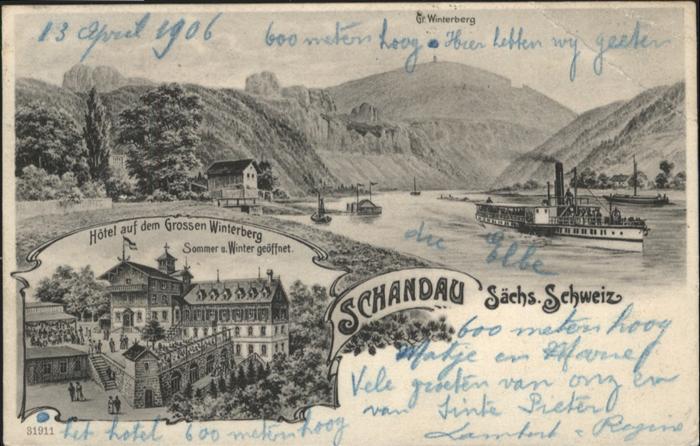 Gr. Winterberg
13 April 1906
600 meters hoog • Hier hebben wij geeten
Hôtel auf dem Grossen Winterberg
Sommer u. Winter geöffnet.
die Elbe
SCHANDAU Sächs. Schweiz
600 meters hoog
Matje en
Vele groeten van onz en
van Sinte Pieter
Lambert - Regine
31911
• het hotel 600 meters hoog